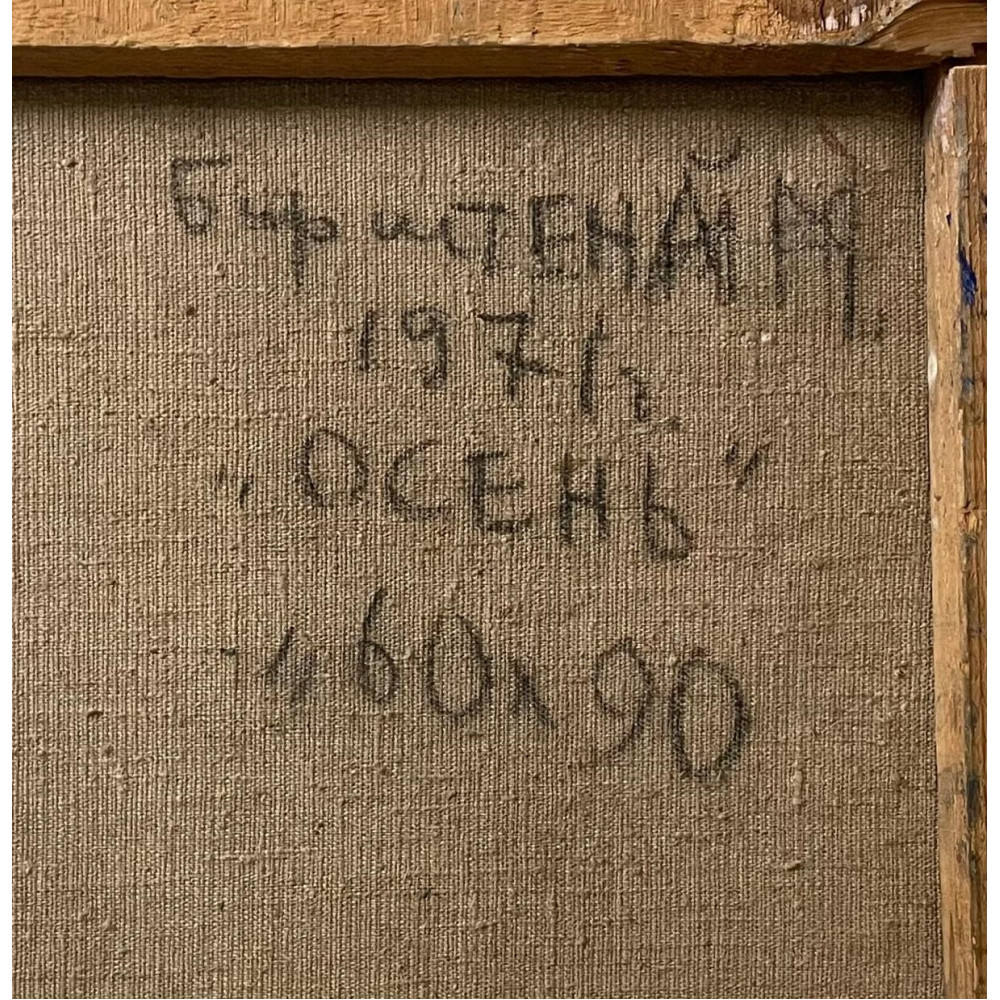 БириштЕНАЙ М.
1971 г.
"ОСЕНЬ"
60х90